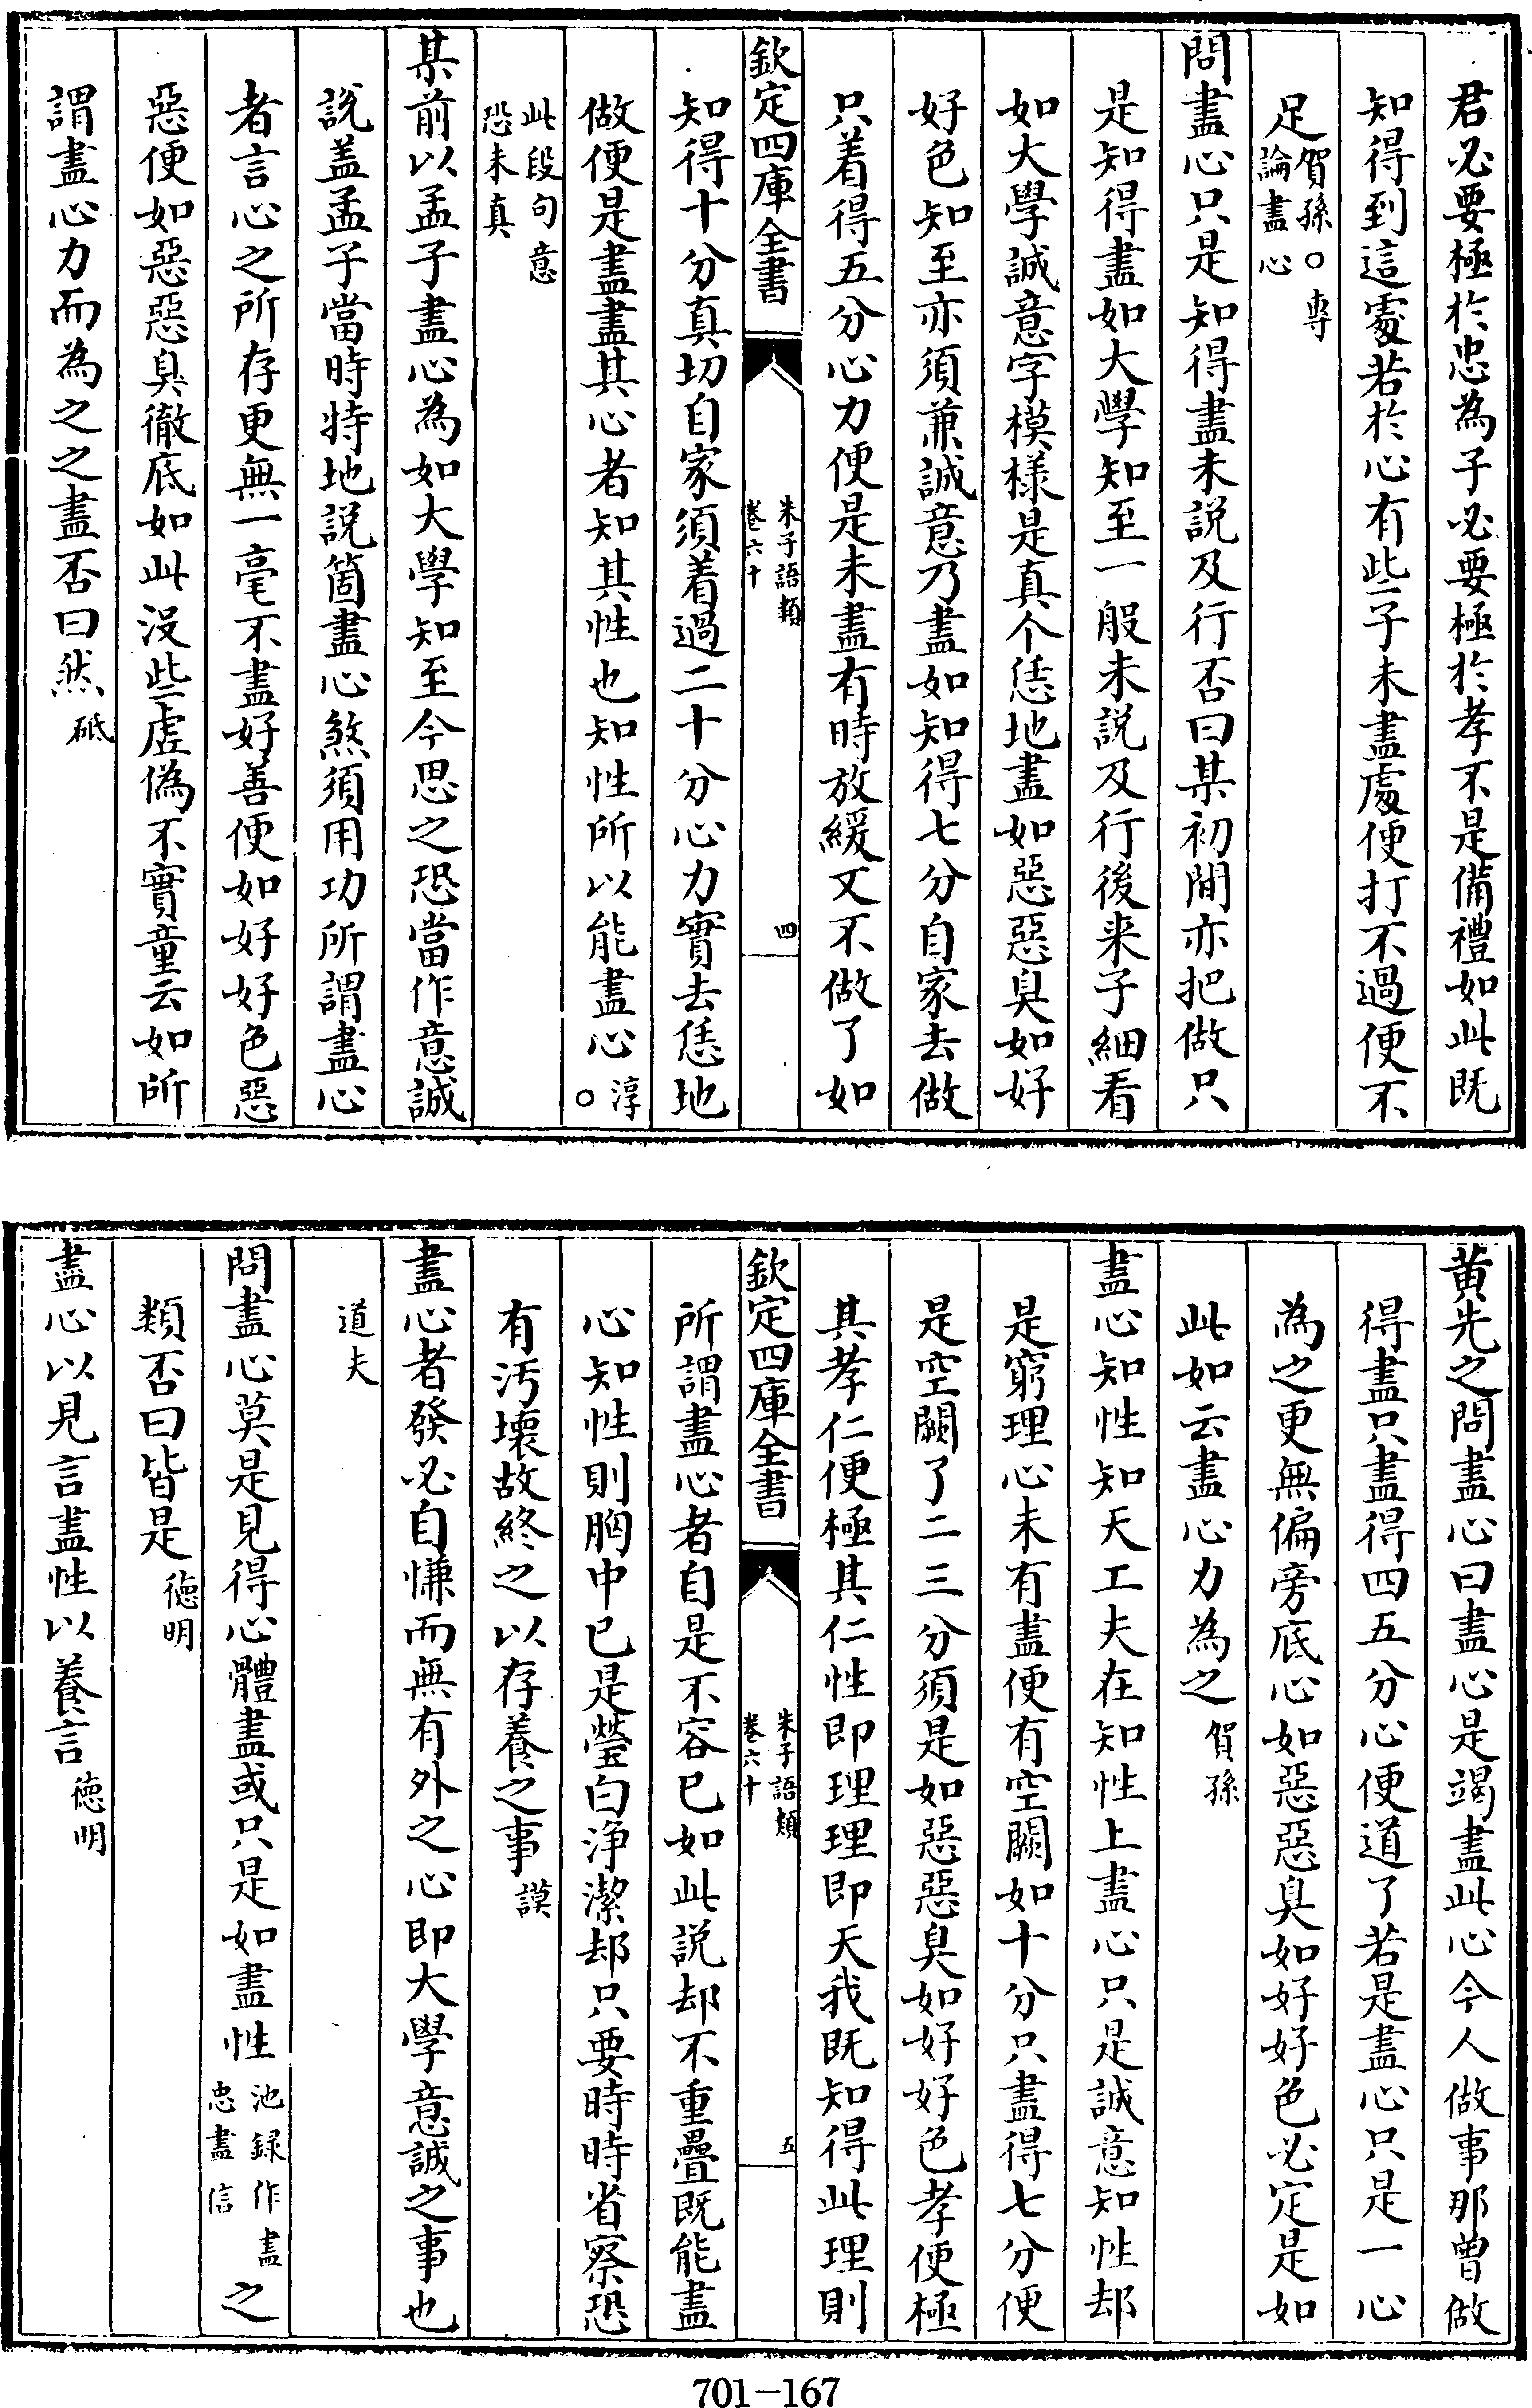 君必要極於忠為子必要極於孝不是備禮如此既
知得到這處若於心有些子未盡處便打不過便不
足賀孫○專論盡心
問盡心只是知得盡未説及行否曰某初間亦把做只
是知得盡如大學知至一般未説及行後来子細看
如大學誠意字模樣是真个恁地盡如惡惡臭如好
好色知至亦須兼誠意乃盡如知得七分自家去做
只着得五分心力便是未盡有時放緩又不做了如
欽定四庫全書
朱子語類
卷六十
四
知得十分真切自家須着過二十分心力實去恁地
做便是盡盡其心者知其性也知性所以能盡心淳○
此段句意恐未真
某前以孟子盡心為如大學知至今思之恐當作意誠
説盖孟子當時特地説箇盡心煞須用功所謂盡心
者言心之所存更無一毫不盡好善便如好好色惡
惡便如惡惡臭徹底如此没些虚偽不實童云如所
謂盡心力而為之之盡否曰然砥
黄先之問盡心曰盡心是竭盡此心今人做事那曾做
得盡只盡得四五分心便道了若是盡心只是一心
為之更無偏旁底心如惡惡臭如好好色必定是如
此如云盡心力為之賀孫
盡心知性知天工夫在知性上盡心只是誠意知性却
是窮理心未有盡便有空闕如十分只盡得七分便
是空闕了二三分須是如惡惡臭如好好色孝便極
其孝仁便極其仁性即理理即天我既知得此理則
欽定四庫全書
朱子語類
卷六十
五
所謂盡心者自是不容已如此説却不重疊既能盡
心知性則胸中已是瑩白浄潔却只要時時省察恐
有汚壞故終之以存養之事謨
盡心者發必自慊而無有外之心即大學意誠之事也
道夫
問盡心莫是見得心體盡或只是如盡性池録作盡忠盡信之
類否曰皆是徳明
盡心以見言盡性以養言徳明
701-167